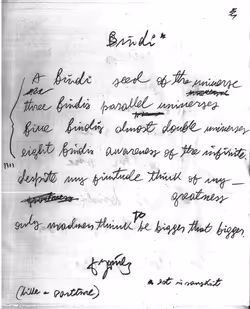 Bindi*
A Bindi seed of the universe
three bindis parallel universes
five bindis almost double universes
eight bindis awareness of the infinite,
despite my finitude think of my —
greatness
only madness think to be bigger that bigger
* dot in sanskrit